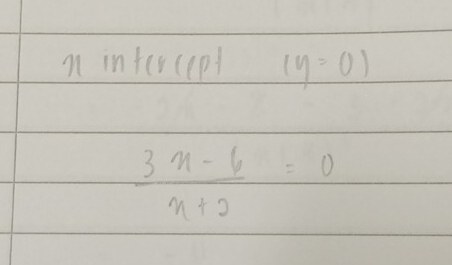 x intercept (y = 0)
3x - 6 = 0
x + 2